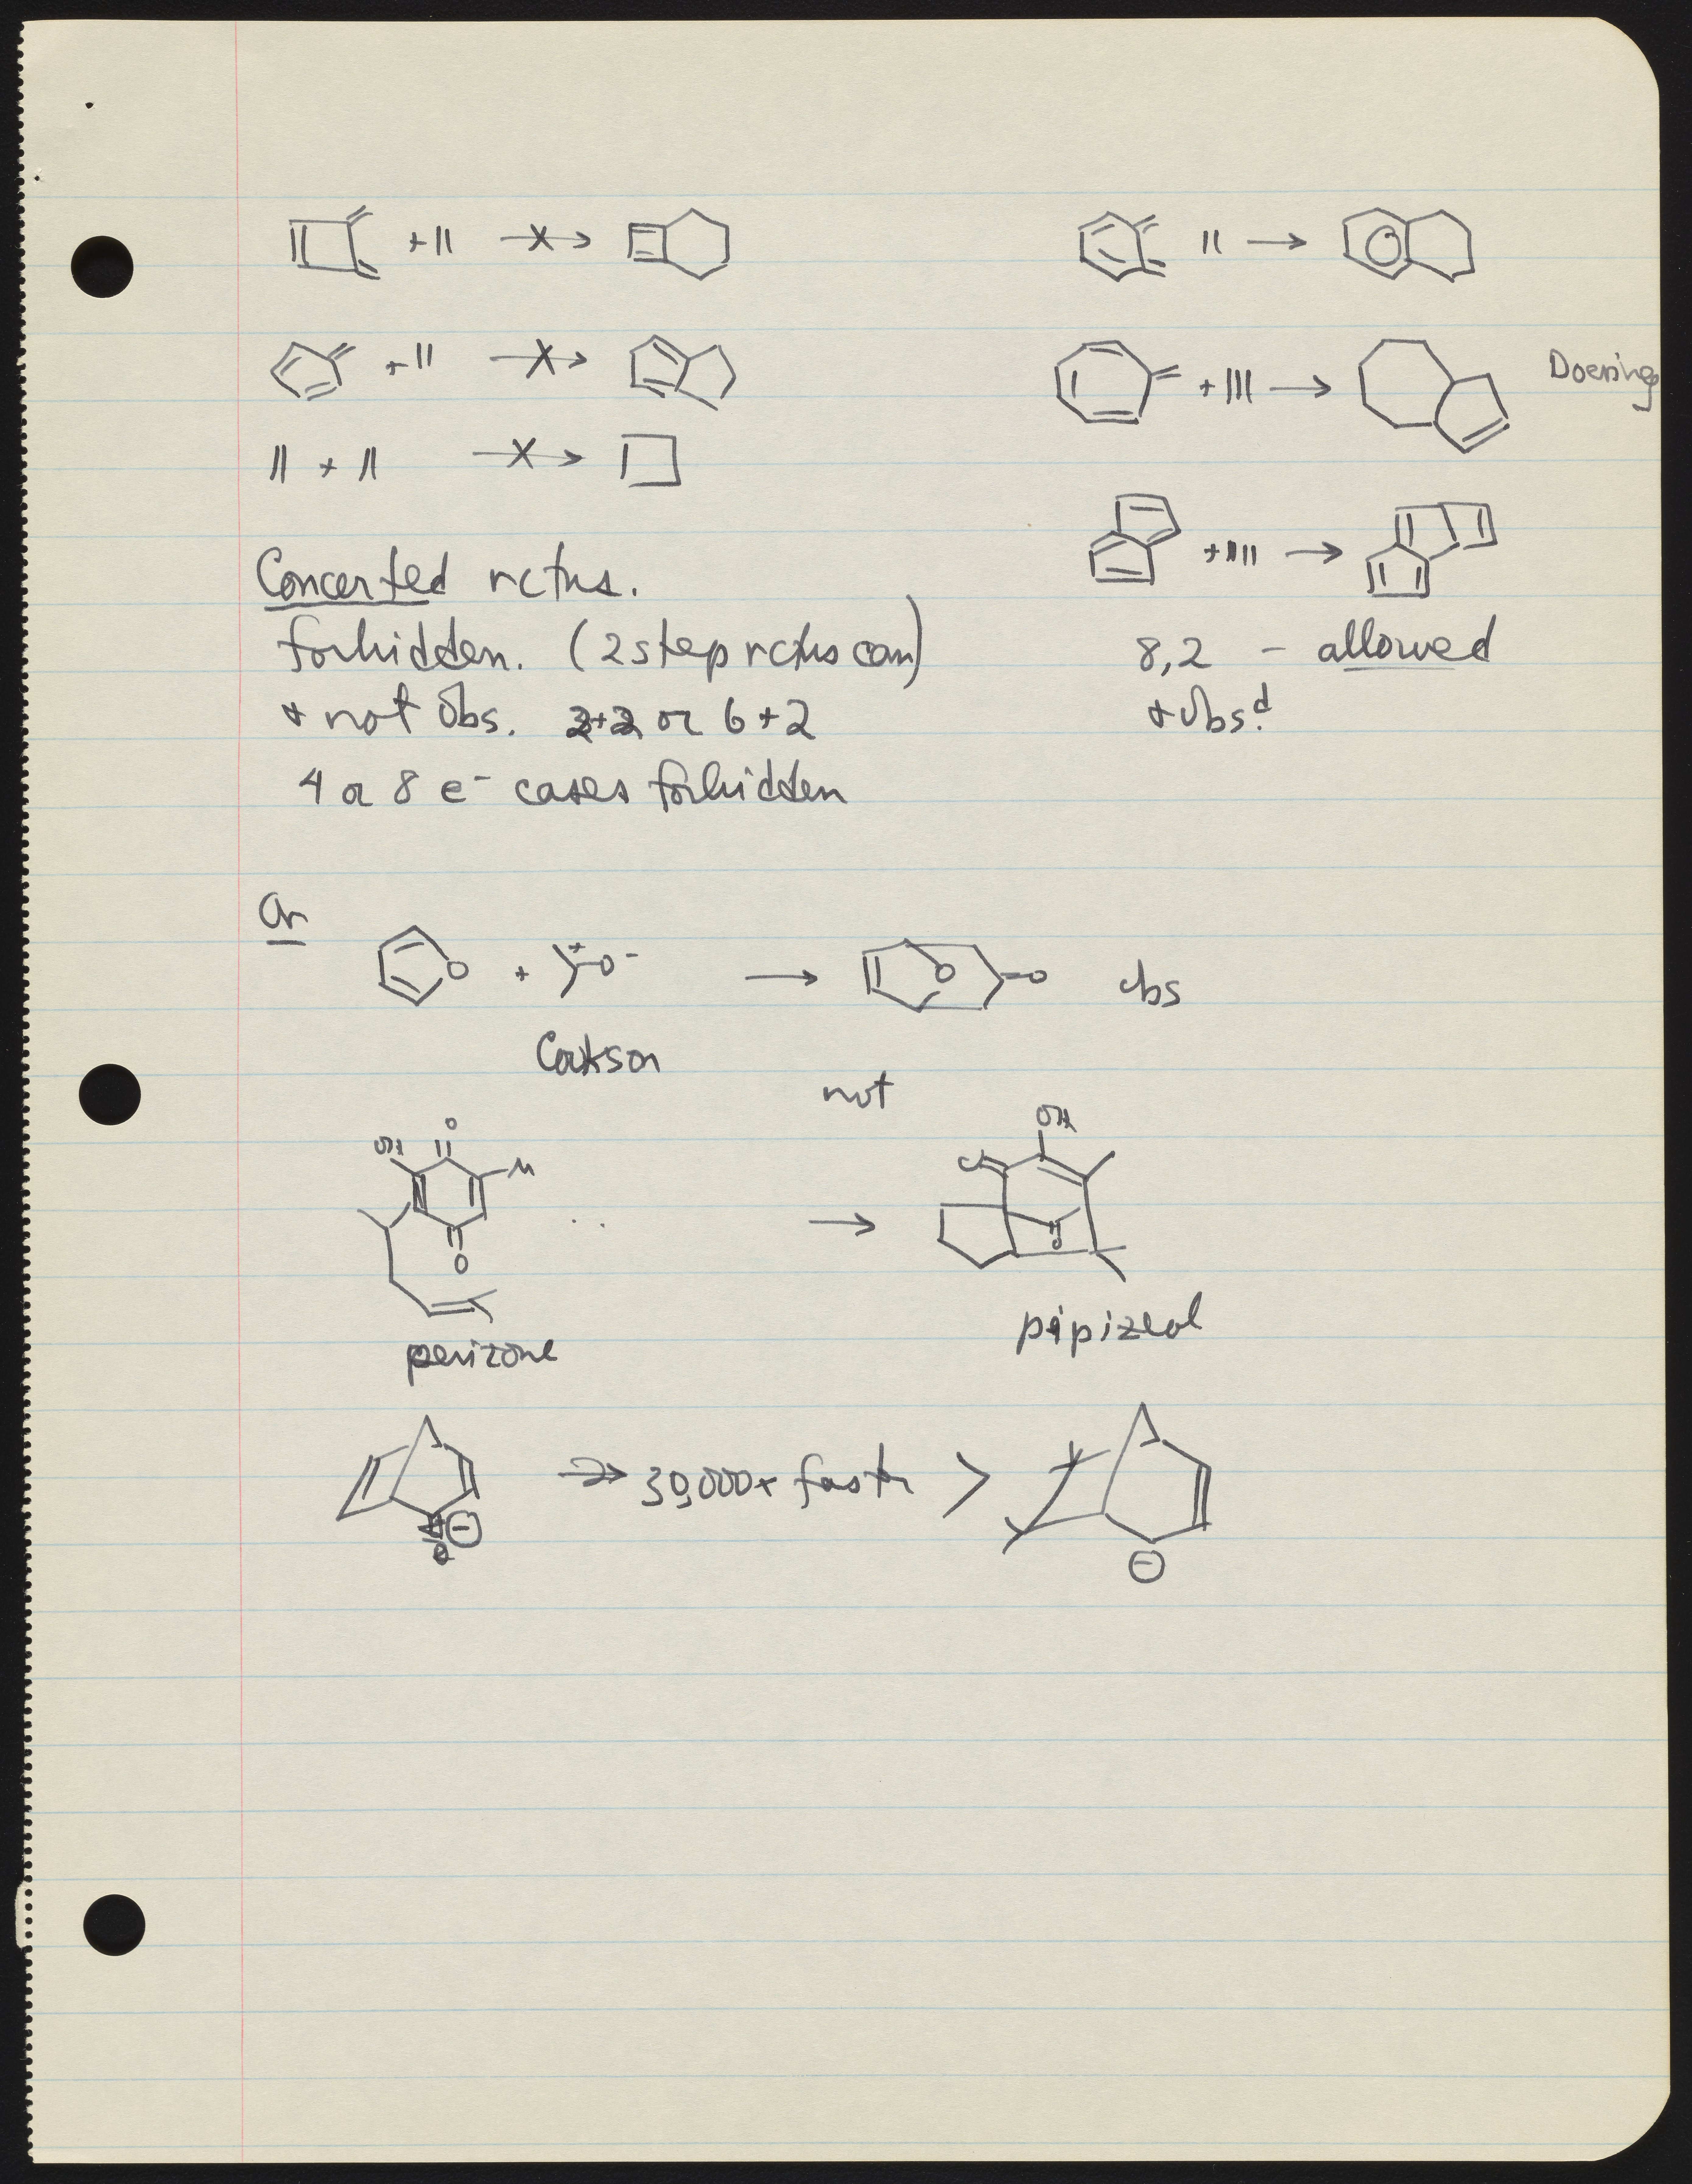 Doering
Concerted rctns.
forbidden. (2 step rctns can)
+ not Obs. 2+2 or 6+2
4 or 8 e- cases forbidden
8,2 - allowed
+ Obsd.
Or
O
+
O-
O
O
obs
Cookson
not
OH
O
M
O
OH
O
perizone
pipizeol
30,000x faster >